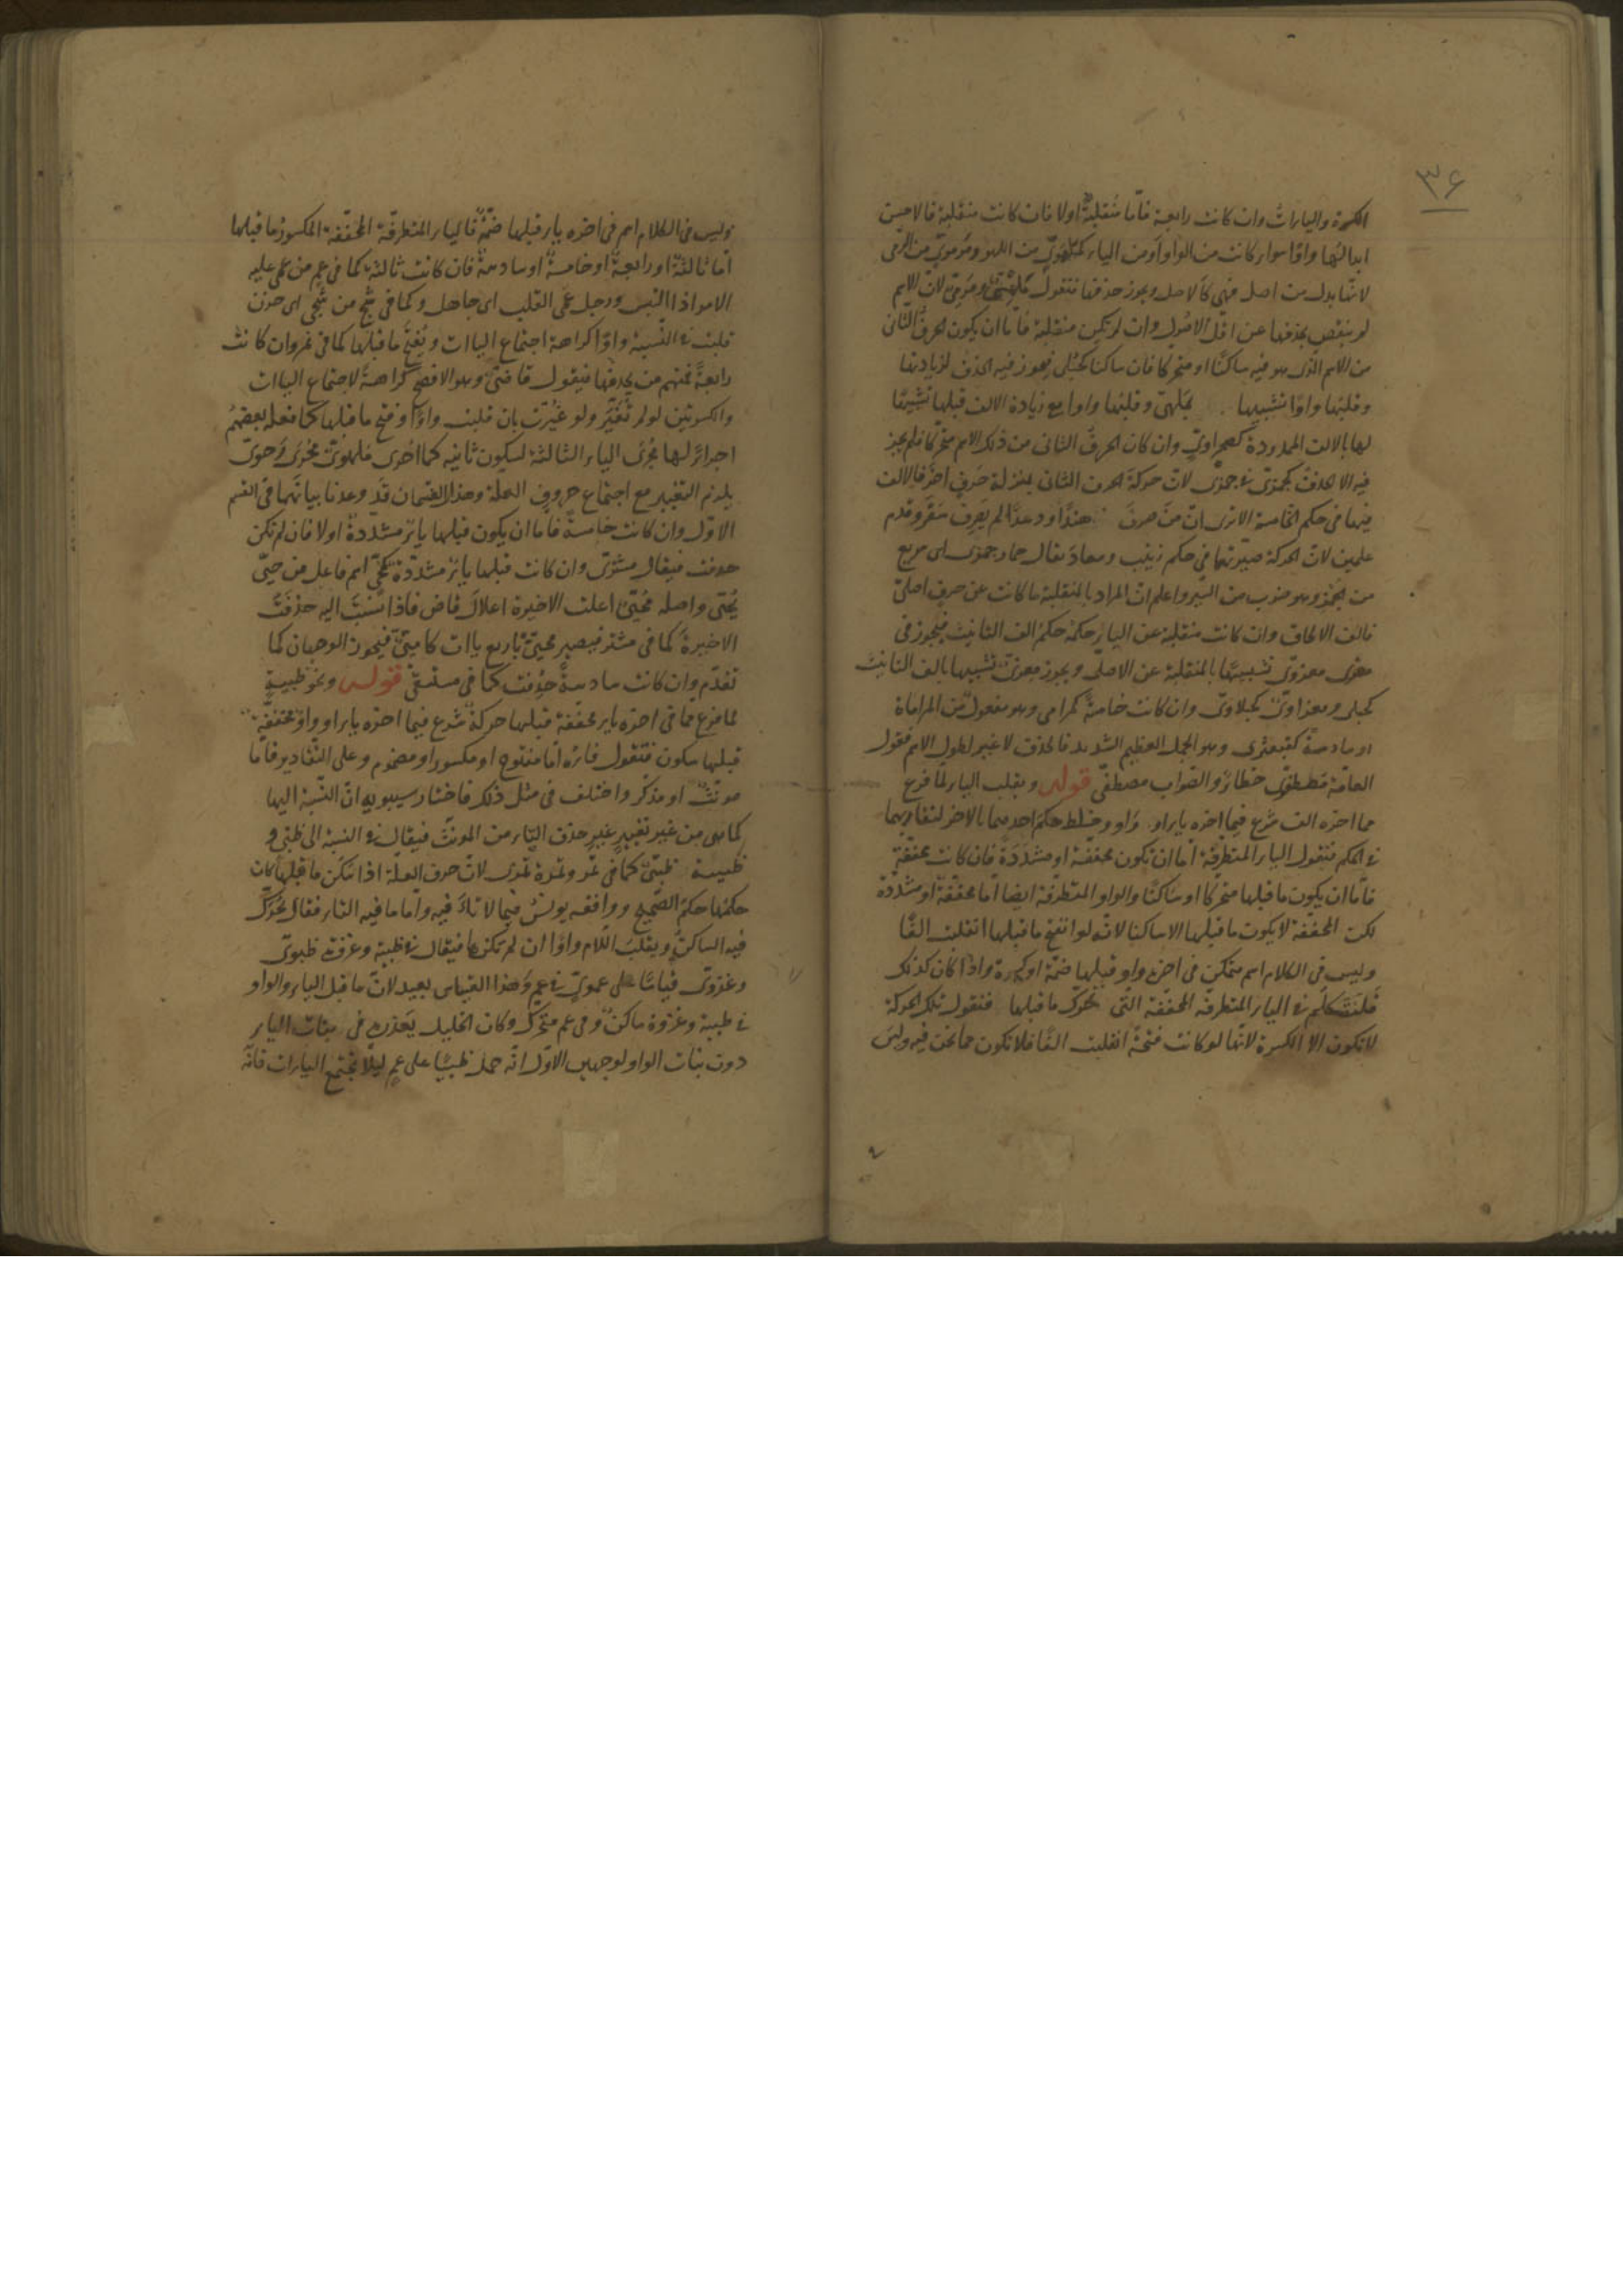 ٣۶
الكسرة والياءات وان كانت رابعة فاما منقلبة اولا فان كانت منقلبة فالاحسن
ابدالها واوا سواء كانت من الواو او من الياء كملهوى من اللهو ومرموى من الرمى
لانها بدل من اصل فهى كالاصل ويجوز حذفها فتقول ملهى ومرمى لان الاسم
لم ينقص بحذفها عن اقل الاصول وان لم تكن منقلبة فاما ان يكون الحرف الثانى
من الاسم الذى هو فيه ساكنا او متحركا فان ساكنا كحبلى فيجوز فيه الحذف لزيادتها
وقلبها واوا تشبيها بملهى وقلبها واوا مع زيادة الالف قبلها تشبيها
لها بالالف الممدودة كصحراوى وان كان الحرف الثانى من ذلك الاسم متحركا فلم يجز
فيه الا الحذف كجمزى فى جمزى لان حركة الحرف الثانى بمنزلة حرف اخر فالالف
فيها فى حكم الخامسة الا ترى ان من صرف هندا ودعدا لم يصرف سقر وقدم
علمين لان الحركة صيرتهما فى حكم زينب وسعاد يقال حمار جمزى اى سريع
من الجمز وهو ضرب من السير واعلم ان المراد بالمنقلبة ما كانت عن حرف اصلى
فالف الالحاق وان كانت منقلبة عن الياء حكمه حكم الف التانيث فيجوز فى
معزى معزوى تشبيها بالمنقلبة عن الاصلى ويجوز معزى تشبيها بالف التانيث
كحبلى ومعزاوى كحبلاوى وان كانت خامسة كمرامى وهو مفعول من المراماة
او سادسة كقبعثرى وهو الجمل العظيم الشديد فالحذف لا غير لطول الاسم فقول
العامة مصطفوى خطاء والصواب مصطفى قوله وبقلب الياء لما فرغ
مما اخره الف شرع فيما اخره ياء او واو وخلط حكم احدهما بالاخر لتقاربهما
فى الحكم فنقول الياء المتطرفة اما ان تكون مخففة او مشددة فان كانت مخففة
فاما ان يكون ما قبلها متحركا او ساكنا والواو المتطرفة ايضا اما مخففة او مشددة
لكن المخففة لا يكون ما قبلها الا ساكنا لانه لو انفتح ما قبلها انقلبت الفا
وليس فى الكلام اسم متمكن فى اخره واو قبلها ضمة او كسرة واذا كان كذلك
فلنتكلم فى الياء المتطرفة المخففة التى تحرك ما قبلها فنقول تلك الحركة
لا تكون الا الكسرة لانها لو كانت فتحة انقلبت الفا فلا تكون مما نحن فيه وليس
وليس فى الكلام اسم فى اخره ياء قبلها ضمة فالياء المتطرفة المخففة المكسور ما قبلها
اما ثالثة او رابعة او خامسة او سادسة فان كانت ثالثة كما فى عم من عمى عليه
الامر اذا التبس ورجل عمى القلب اى جاهل وكما فى شج من شجى اى حزن
قلبت فى النسبة واوا كراهة اجتماع الياات ويفتح ما قبلها كما فى نمر وان كانت
رابعة فمنهم من يحذفها فيقول قاضى وهو الافصح كراهة لاجتماع الياات
والكسرتين لو لم تغير ولو غيرت بان قلبت واوا وفتح ما قبلها كما فعله بعضهم
اجراء لها مجرى الياء الثالثة لسكون ثانيه كما اجرى ملهوى مجرى رحوى
يلزم التغيير مع اجتماع حروف العلة وهذا القسمان قد وعدنا بيانهما فى القسم
الاول وان كانت خامسة فاما ان يكون قبلها ياء مشددة اولا فان لم تكن
حذفت فيقال مشترى وان كانت قبلها ياء مشددة كمحى اسم فاعل من حيى
يحيى واصله محيى اعلت الاخيرة اعلال قاض فاذا نسبت اليه حذفت
الاخيرة كما فى مشتر فيصير محيى باربع ياات كاميى فيجوز الوجهان كما
تقدم وان كانت سادسة حذفت كما فى مستسقى قوله ونحو ظبية
لما فرغ مما فى اخره ياء مخففة قبلها حركة شرع فيما اخره ياء او واو مخففة
قبلها سكون فنقول فاؤه اما مفتوح او مكسور او مضموم وعلى التقادير فاما
مونث او مذكر واختلف فى مثل ذلك فاختار سيبويه ان النسبة اليها
كما هى من غير تغيير غير حذف التاء من المونث فيقال فى النسبة الى ظبى و
ظبية ظبيى كما فى تمر وتمرة تمرى لان حرف العلة اذا سكن ما قبلها كان
حكمها حكم الصحيح ووافقه يونس فيما لا تاء فيه واما ما فيه التاء فقال يحرك
فيه الساكن ويقلب اللام واوا ان لم تكنها فيقال فى ظبية وغزوة ظبوى
وغزوى قياسا على عموى فى عم وهذا القياس بعيد لان ما قبل الياء والواو
فى ظبية وغزوة ساكن وفى عم متحرك وكان الخليل يعذره فى بنات الياء
دون بنات الواو لوجهين الاول انه حمل ظبيا على عم ليلا يجتمع الياءات فانه